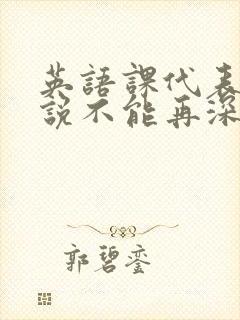 英語課代表
說不能再深
郭碧銮